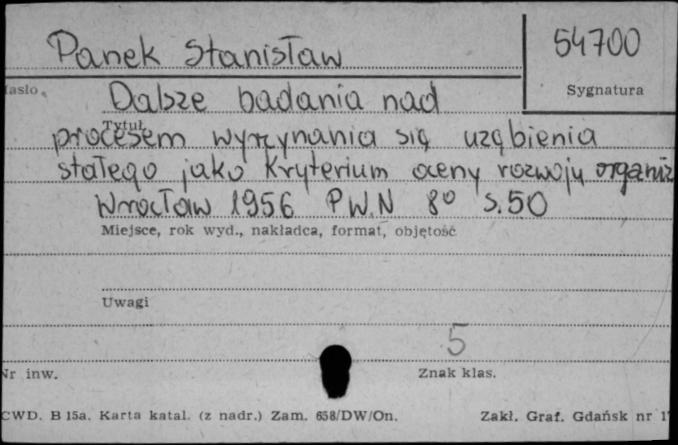 Panek Stanisław
54700
Sygnatura
Dalsze badania nad
Tytuł
procesem wyrzynania się uzębienia
stałego jako kryterium oceny rozwoju organiz
Wrocław 1956 PWN 8° s.50
Miejsce, rok wyd., nakładca, format, objętość
Uwagi
5
Nr inw.
Znak klas.
CWD. B 15a. Karta katal. (z nadr.) Zam. 658/DW/On.
Zakł. Graf. Gdańsk nr 1